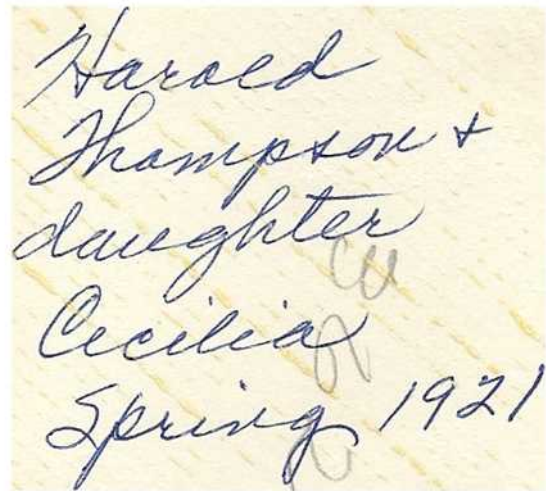 Harold
Thompson +
daughter
Cecilia
Spring 1921